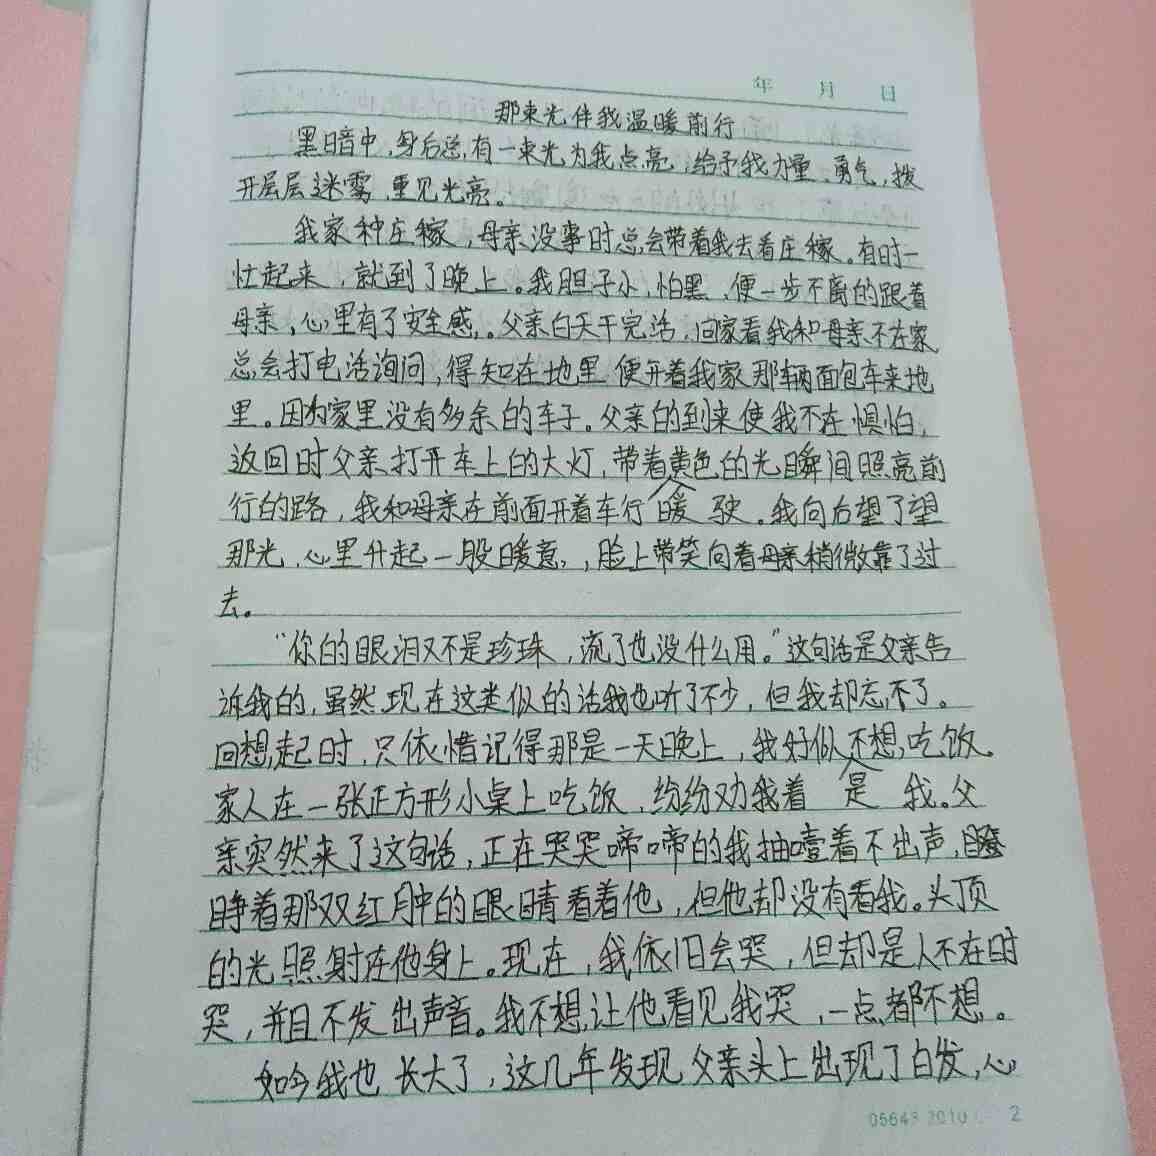 年 月 日
那束光伴我温暖前行
黑暗中，身后总有一束光为我点亮，给予我力量、勇气，拨
开层层迷雾，重见光亮。
我家种庄稼，母亲没事时总会带着我去看庄稼。有时一
忙起来，就到了晚上。我胆子小，怕黑，便一步不离的跟着
母亲，心里有了安全感。父亲白天干完活，回家看我和母亲不在家
总会打电话询问，得知在地里便开着我家那辆面包车来地
里。因为家里没有多余的车子。父亲的到来使我不在惧怕，
返回时父亲打开车上的大灯，带着黄色的光瞬间照亮前
行的路，我和母亲在前面开着车行 暖 驶。我向后望了望
那光，心里升起一股暖意，，脸上带笑向着母亲稍微靠了过
去。
“你的眼泪又不是珍珠，流了也没什么用。”这句话是父亲告
诉我的，虽然现在这类似的话我也听了不少，但我却忘不了。
回想起时，只依惜记得那是一天晚上，我好似不想吃饭
家人在一张正方形小桌上吃饭，纷纷劝我着 是 我。父
亲突然来了这句话，正在哭哭啼啼的我抽噎着不出声，
睁着那双红肿的眼睛看着他，但他却没有看我。头顶
的光照射在他身上。现在，我依旧会哭，但却是人不在时
哭，并且不发出声音。我不想让他看见我哭，一点都不想。
如今我也长大了，这几年发现父亲头上出现了白发，心
05643 2010 2